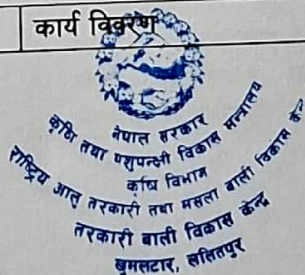 कार्य विवरण
नेपाल सरकार
कृषि तथा पशुपन्छी विकास मन्त्रालय
कृषि विभाग
राष्ट्रिय आलु तरकारी तथा मसला बाली विकास केन्
तरकारी बाली विकास केन्द्र
खुमलटार, ललितपुर